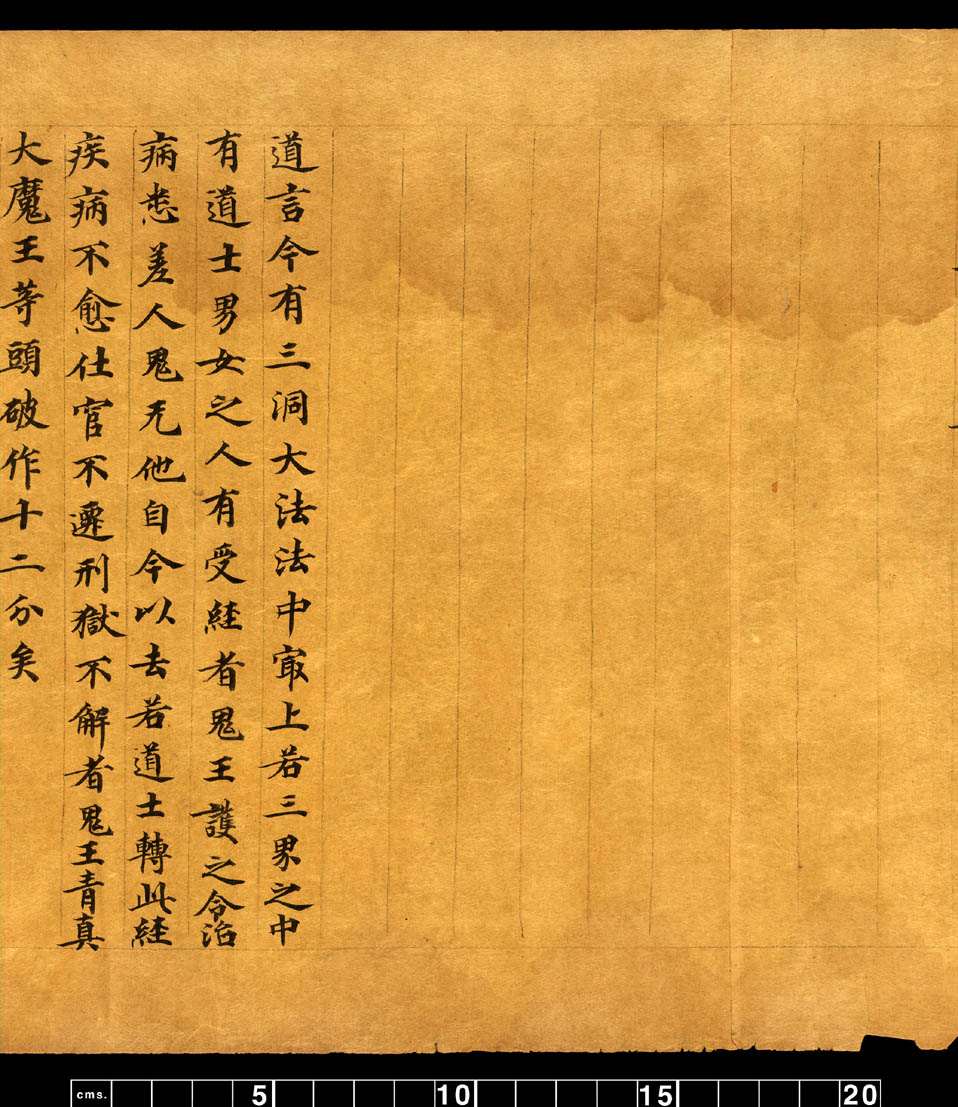 道言今有三洞大法法中冣上若三界之中
有道士男女之人有受経者鬼王護之令治
病悉差人鬼无他自今以去若道士轉此経
疾病不愈仕官不遷刑獄不解者鬼王青真
大魔王等頭破作十二分矣
cms. 5 10 15 20